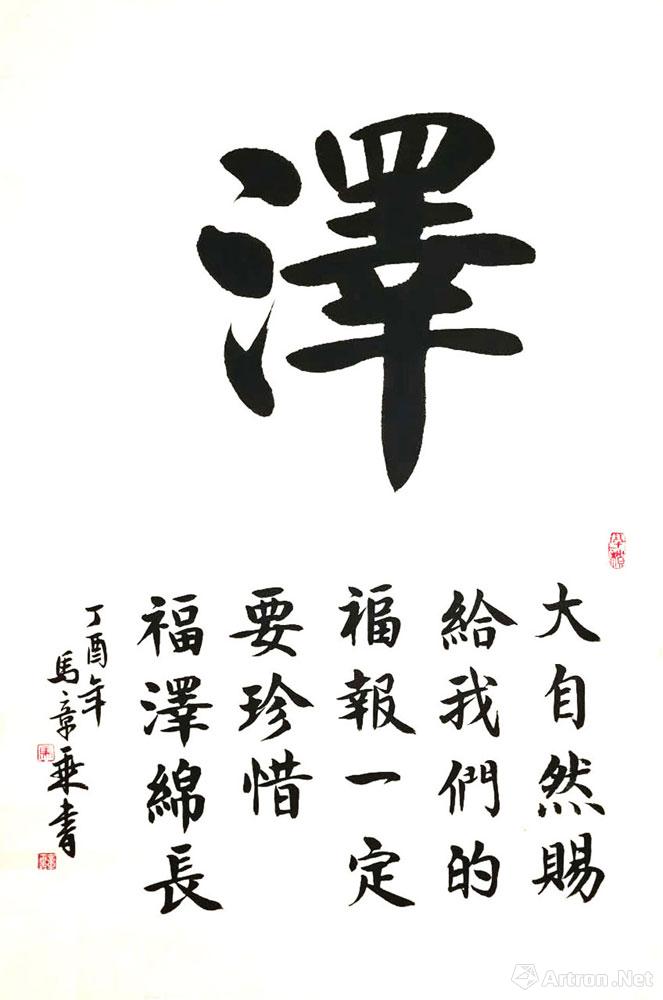 澤
大自然賜
給我們的
福報一定
要珍惜
福澤綿長
丁酉年
馬章乘書
Artron.Net